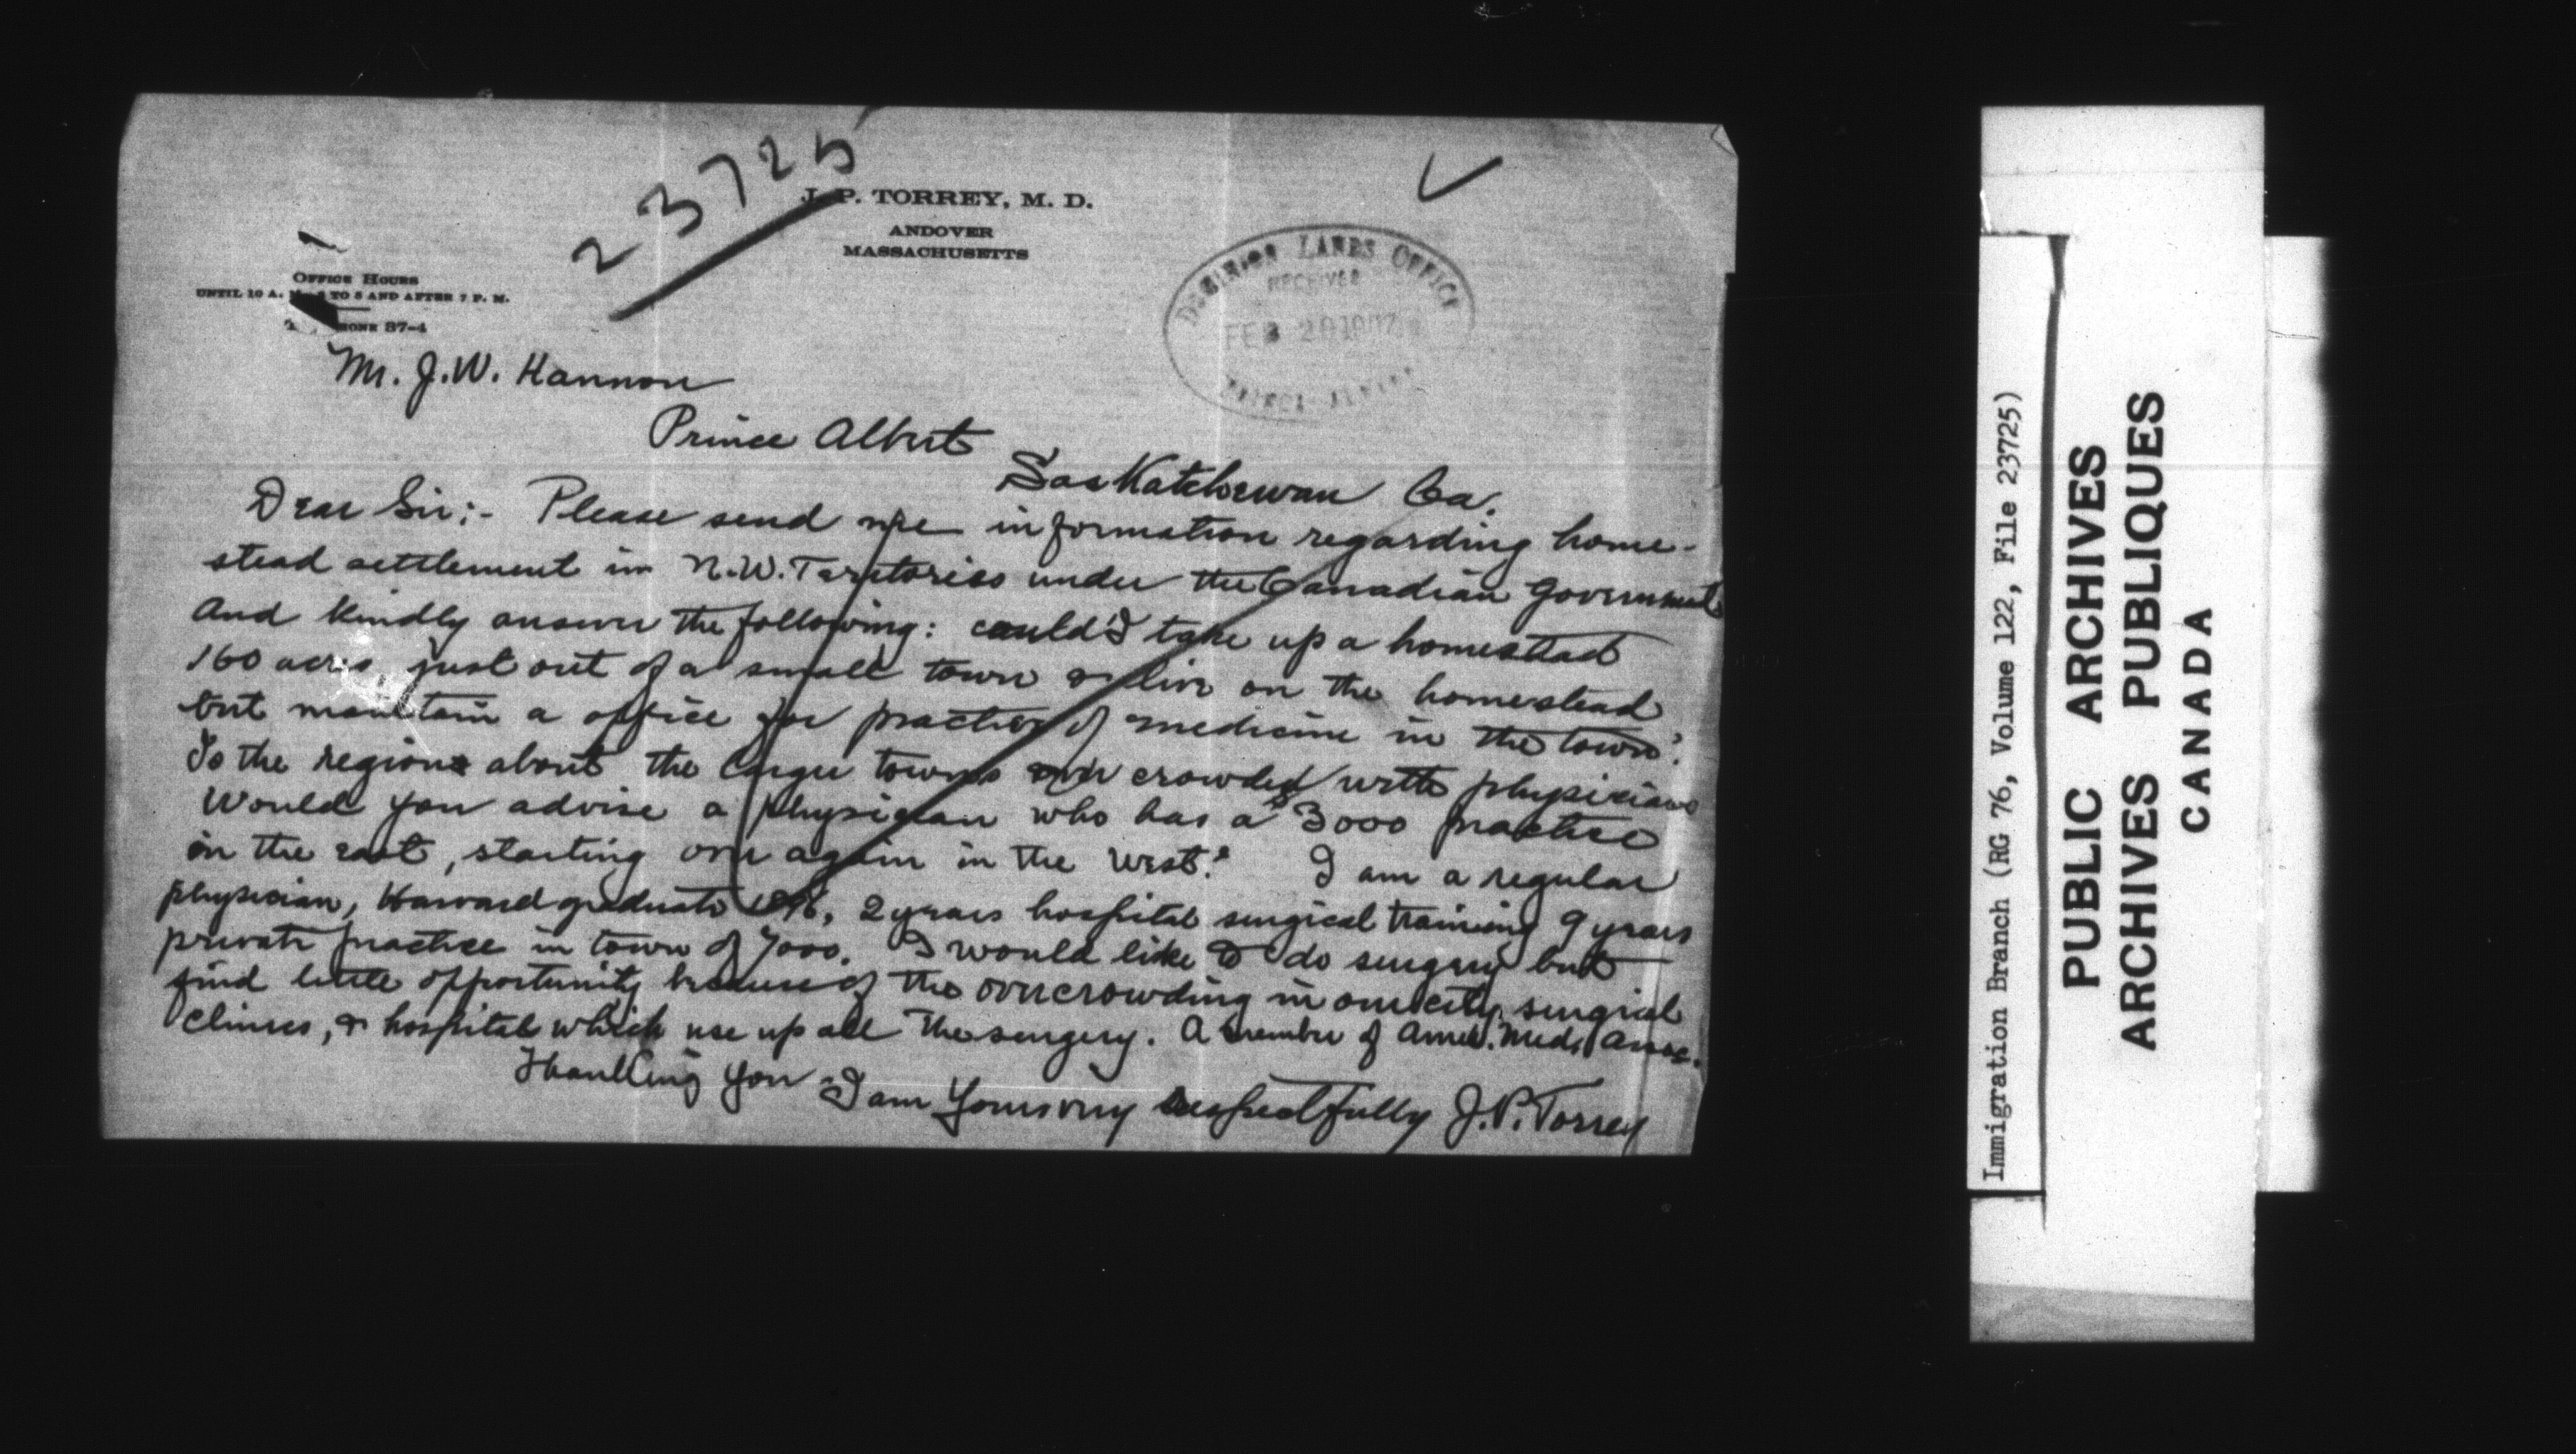 23725
J. P. TORREY, M. D.
ANDOVER
MASSACHUSETTS
OFFICE HOURS
UNTIL 10 A. TO 5 AND AFTER 7 P. M.
87-4
DOMINION LANDS OFFICE
RECEIVED
FEB 20 1907
Mr. J. W. Hannon
Prince Albert
Saskatchewan Ca.
Dear Sir:- Please send me information regarding home-
stead settlement in N.W. Territories under the Canadian Government
And kindly answer the following: could I take up a homestead
160 acres just out of a small town & live on the homestead
but maintain a office for practice of medicine in the town?
Is the region about the larger towns over crowded with physicians
Would you advise a physician who has a $3000 practice
in the east, starting over again in the west? I am a regular
physician, Harvard graduate 1896, 2 years hospital surgical training 9 years
private practice in town of 7000. I would like to do surgery but
find little opportunity because of the overcrowding in our city surgical
Clinics, & hospital which use up all the surgery. A member of Amer. Med. Assoc.
Thanking you I am Yours very respectfully J. P. Torrey
Immigration Branch (RG 76, Volume 122, File 23725)
PUBLIC ARCHIVES
ARCHIVES PUBLIQUES
CANADA